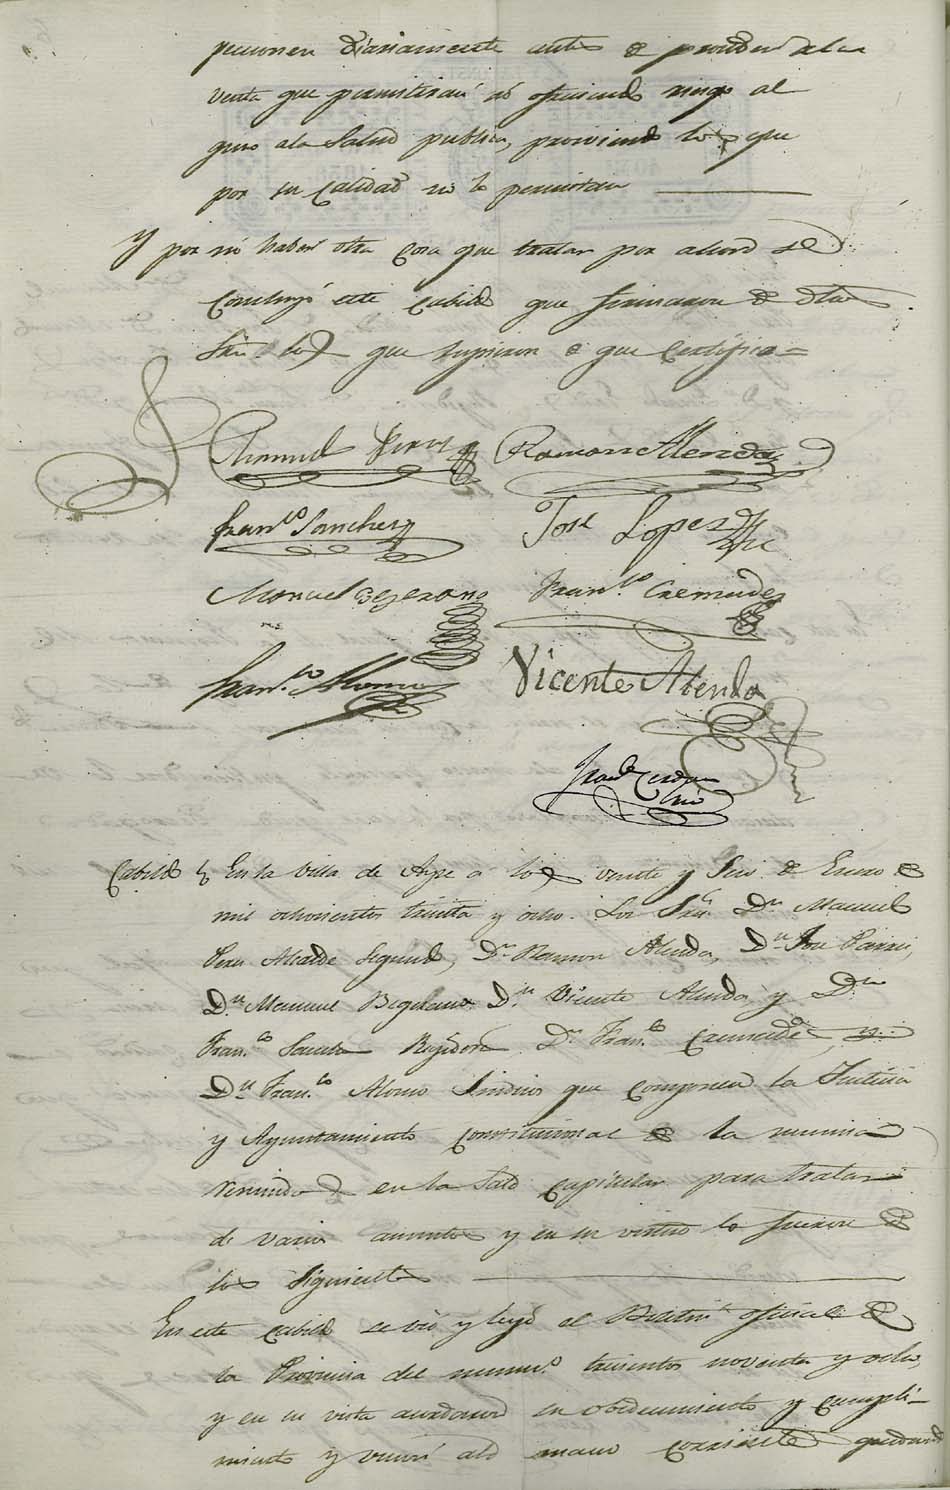 diariamente antes de proceder a la
venta que permitirán no ofreciendo riesgo al
guno a la Salud publica, proiviendo los que
por su calidad no lo permitan
Y por no haber otra cosa que tratar por ahora se
concluyó este Cabildo que firmaron de dhos
Sres. los que supieron de que Certifico =
Manuel Ramon Alenda
Franco. Sanchez Jose Lopez
Manuel Begerano Franco. Cremades
Franco. Alonso Vicente Alenda
Cabildo En la Villa de Aspe a los veinte y Seis de Enero de
mil ochocientos treinta y ocho. Los Sres. Dn. Manuel
Alcalde Segundo, Dn. Ramon Alenda, Dn. Jose
Dn. Manuel Begerano Dn. Vicente Alenda y Dn
Franco. Sanchez Regidores Dn. Franco. Cremades y
Dn. Franco. Alonso Sindico que componen la Justicia
y Ayuntamiento constitucional de la misma
reunidos en la Sala capitular para tratar
de varios asuntos y en su virtud lo hicieron de
los siguientes
En este cabildo se vió y leyó el Boletin oficial de
la Provincia del numo. trescientos noventa y ocho,
y en su vista acordaron su obedecimiento y cumpli-
miento y unir al corriente quedando